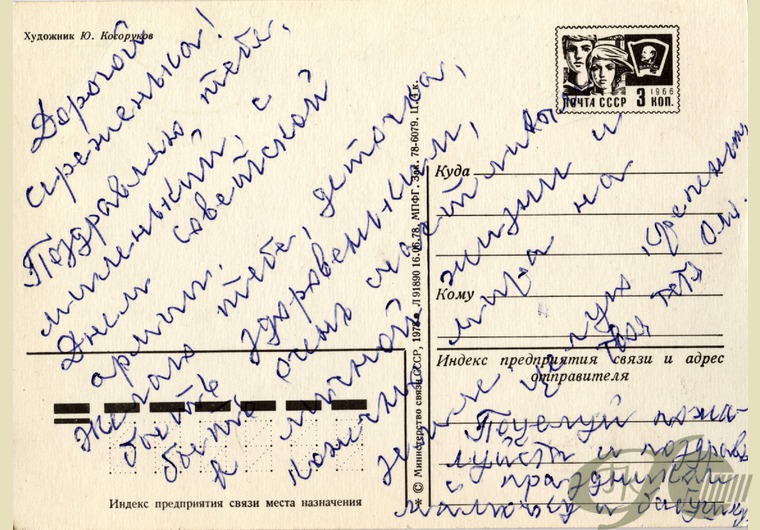 Художник Ю. Косоруков
1966
ПОЧТА СССР 3 КОП.
ВЛКСМ
Дорогой
Сереженька!
Поздравляю тебе,
миленький, с
Днем советской
армии.
Желаю тебе, деточка,
быть здоровеньким,
быть очень счастливым
в личной жизни и
конечно мира на
земле. Целую крепенько,
твоя тётя Оля.
Куда
Кому
Индекс предприятия связи и адрес
отправителя
Поцелуй пожа-
луйста и поздравь
с праздником
мамочку и бабушку
© Министерство связи СССР, 1978 г. Л 91890 16.06.78. МПФГ. Зак. 78-6079. Ц. 4 к.
Индекс предприятия связи места назначения